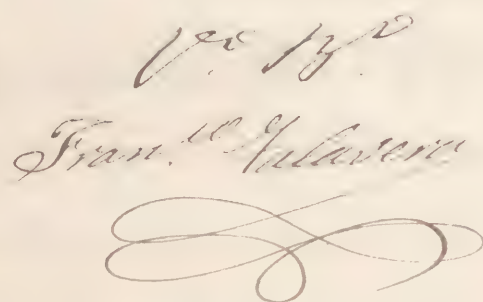 Vo. Bo.
Fran.co Talavera